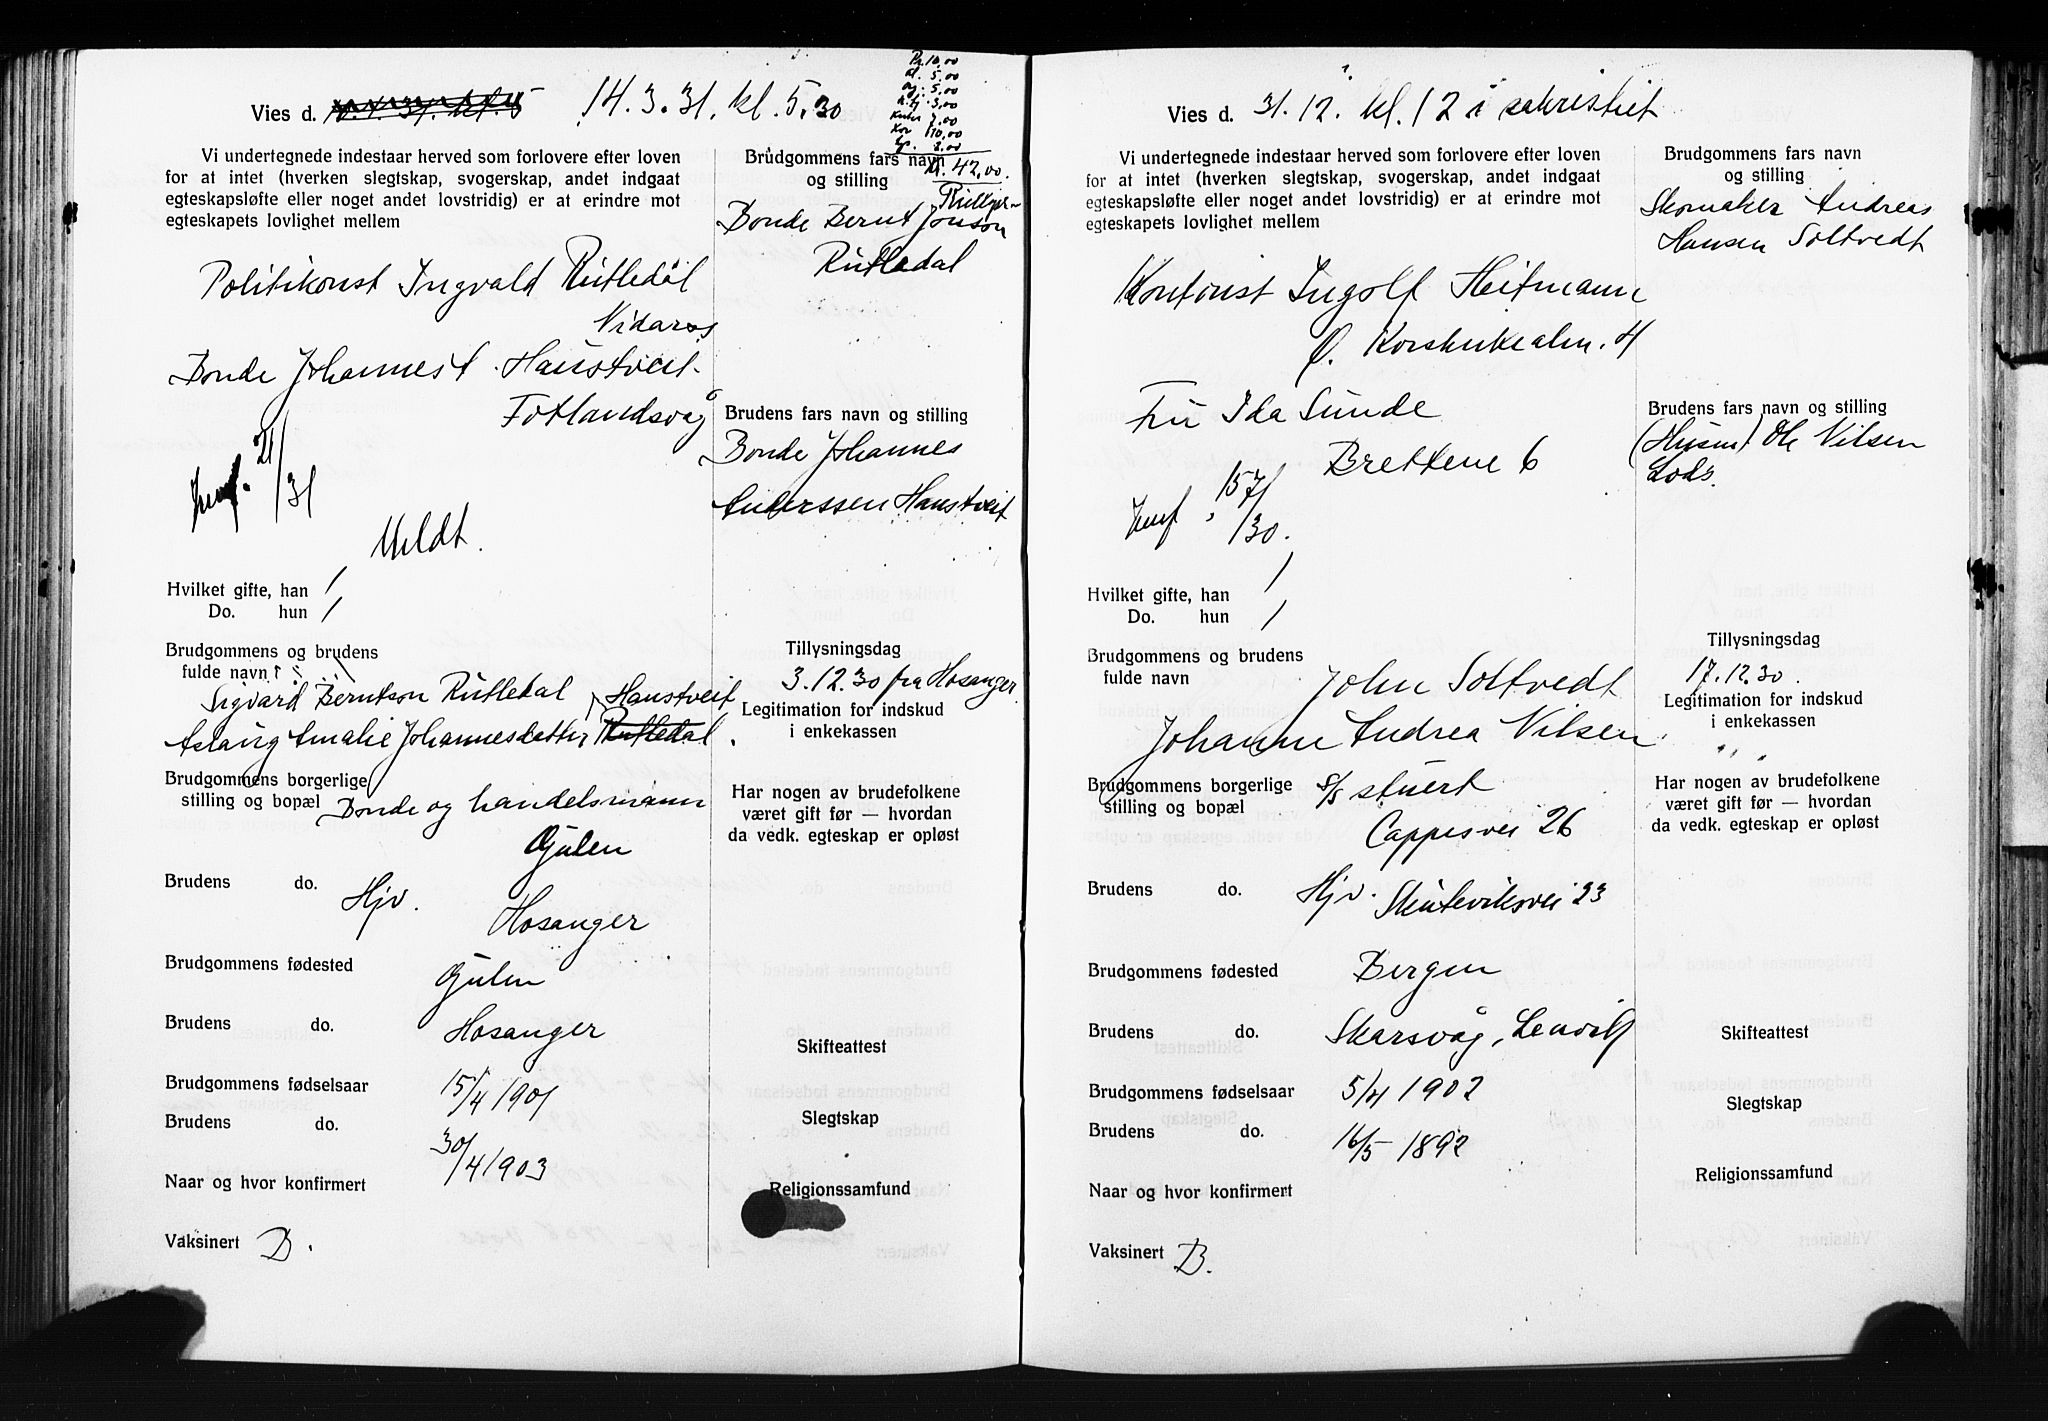 Vies d. 14.3.31. kl. 5.30
Pr. 10,00
5,00
5,00
7,00
Kor 10,00
42,00.
Vi undertegnede indestaar herved som forlovere efter loven
for at intet (hverken slegtskap, svogerskap, andet indgaat
egteskapsløfte eller noget andet lovstridig) er at erindre mot
egteskapets lovlighet mellem
Brudgommens fars navn
og stilling
Bonde Bernt Jonson
Rutledal
Politikonst Ingvald Rutledal
Nidaros
Bonde Johannes A. Haustveit
Fotlandsvåg
Brudens fars navn og stilling
Bonde Johannes
Anderssen Haustveit
21/31
Meldt.
Hvilket gifte, han 1
Do. hun 1
Brudgommens og brudens
fulde navn
Sigvard Berntson Rutledal
Haustveit
Aslaug Amalie Johannesdatter Rutledal
Tillysningsdag
3.12.30 fra Hosanger
Legitimation for indskud
i enkekassen
Brudgommens borgerlige
stilling og bopæl Bonde og handelsmann
Gulen
Har nogen av brudefolkene
været gift før — hvordan
da vedk. egteskap er opløst
Brudens do. Hjv.
Hosanger
Brudgommens fødested Gulen
Brudens do. Hosanger
Skifteattest
Brudgommens fødselsaar 15/4 1901
Slegtskap
Brudens do. 30/4 1903
Naar og hvor konfirmert
Religionssamfund
Vaksinert B.
Vies d. 31.12. kl. 12 i sakristiet
Vi undertegnede indestaar herved som forlovere efter loven
for at intet (hverken slegtskap, svogerskap, andet indgaat
egteskapsløfte eller noget andet lovstridig) er at erindre mot
egteskapets lovlighet mellem
Brudgommens fars navn
og stilling
Skomaker Andreas
Hansen Soltvedt
Kontorist Ingolf Heitmann
Ø. Korskirkealm. 4
Fru Ida Sunde
Brettene 6
Brudens fars navn og stilling
(Husm) Ole Nilsen
Lods.
157/30.
Hvilket gifte, han 1
Do. hun 1
Brudgommens og brudens
fulde navn
John Soltvedt
Johanne Andrea Nilsen
Tillysningsdag
17.12.30.
Legitimation for indskud
i enkekassen
Brudgommens borgerlige
stilling og bopæl S/S stuert
Cappesvei 26
Har nogen av brudefolkene
været gift før — hvordan
da vedk. egteskap er opløst
Brudens do. Hjv. Skuteviksvei 23
Brudgommens fødested Bergen
Brudens do. Skarsvåg, Lenvik
Skifteattest
Brudgommens fødselsaar 5/4 1902
Slegtskap
Brudens do. 16/5 1892
Religionssamfund
Naar og hvor konfirmert
Vaksinert B.